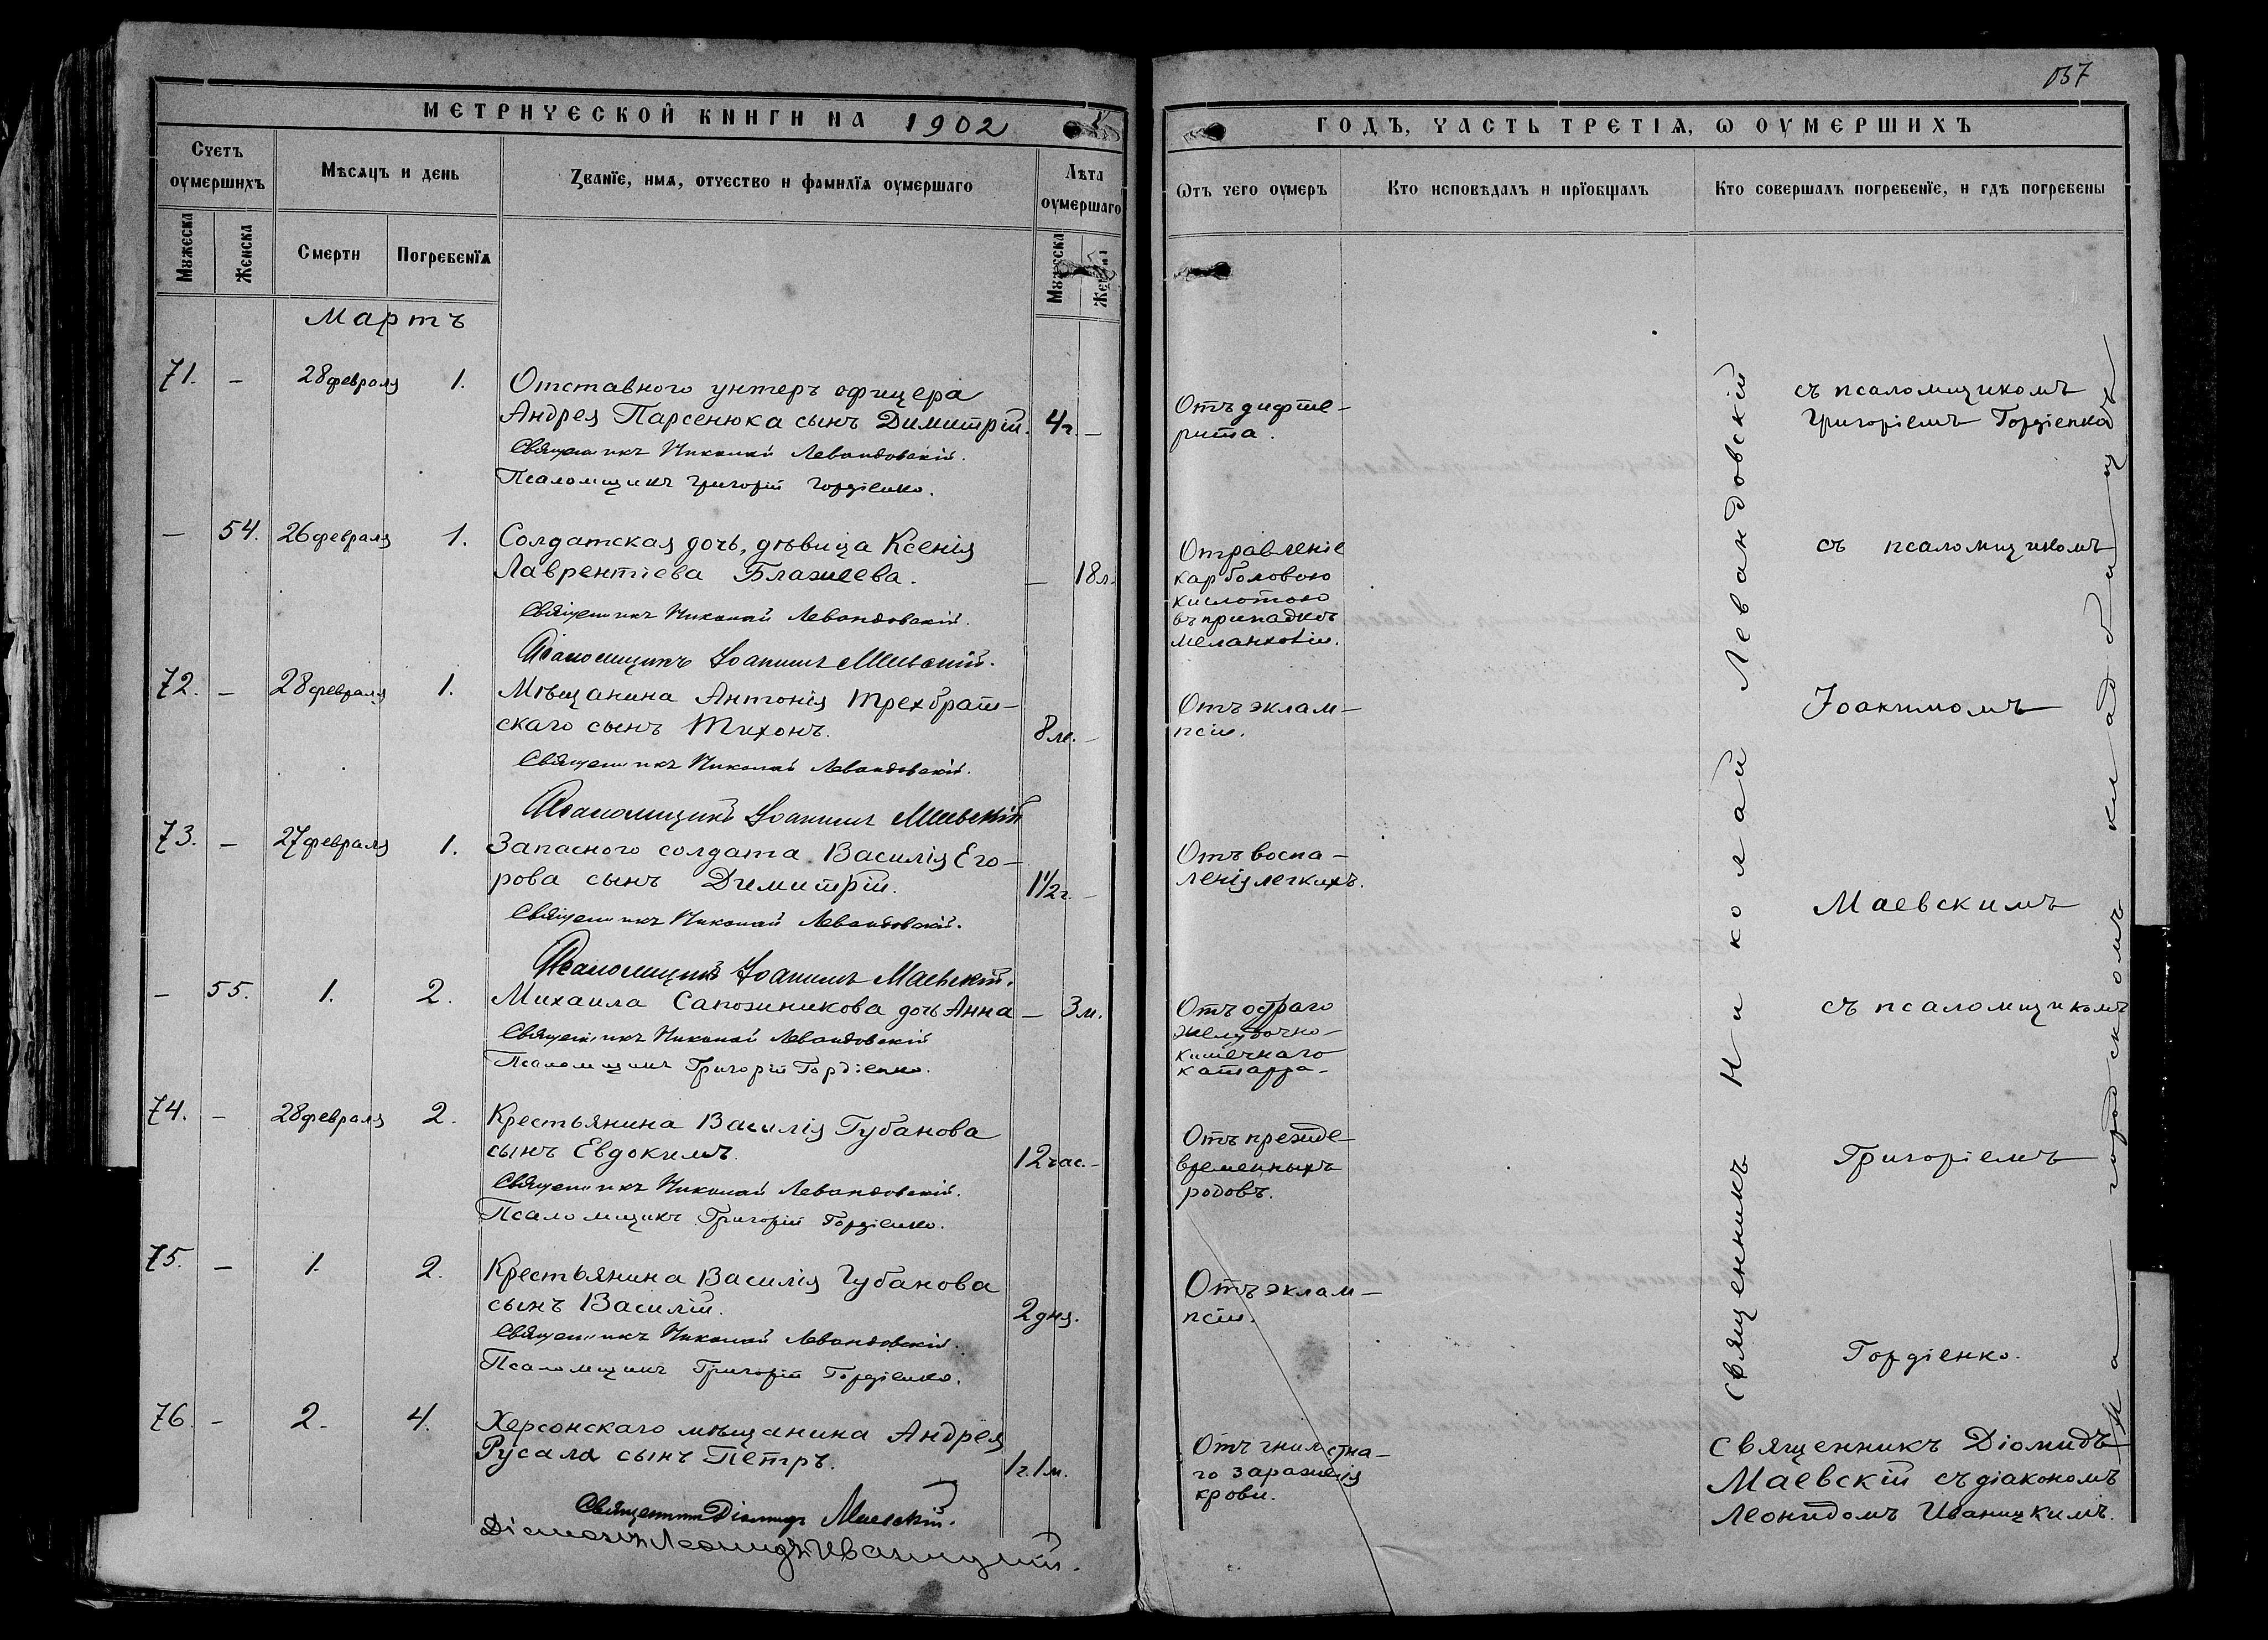 МЕТРИЧЕСКОЙ КНИГИ НА 1902
Счетъ оумершихъ
Мѣсяцъ и день
Званїе, имѧ, отчество и фамилїѧ оумершаго
Лѣта оумершаго
Мꙋжеска
Женска
Смерти
Погребенїѧ
Мꙋжеска
Женска
Мартъ
71. – 28 февраля 1. Отставного унтеръ офицера
Андрея Парсенюка сынъ Димитрій. 4 г. –
Священникъ Николай Левандовскій.
Псаломщикъ Григорій Гордіенко.
– 54. 26 февраля 1. Солдатская дочь, дѣвица Ксенія
Лаврентіева Блажеева. – 18 л.
Священникъ Николай Левандовскій.
Псаломщикъ Іоакимъ Маевскій.
72. – 28 февраля 1. Мѣщанина Антонія Трехбрат-
скаго сынъ Тихонъ. 8 м. –
Священникъ Николай Левандовскій.
Псаломщикъ Іоакимъ Маевскій
73. – 27 февраля 1. Запасного солдата Василія Его-
рова сынъ Димитрій. 1½ г. –
Священникъ Николай Левандовскій.
Псаломщикъ Іоакимъ Маевскій.
– 55. 1. 2. Михаила Сапожникова дочь Анна – 3 м.
Священникъ Николай Левандовскій
Псаломщикъ Григорій Гордіенко.
74. – 28 февраля 2. Крестьянина Василія Губанова
сынъ Евдокимъ. 12 час. –
Священникъ Николай Левандовскій.
Псаломщикъ Григорій Гордіенко.
75. – 1. 2. Крестьянина Василія Губанова
сынъ Василій. 2 дня.
Священникъ Николай Левандовскій.
Псаломщикъ Григорій Гордіенко.
76. – 2. 4. Херсонскаго мѣщанина Андрея
Русала сынъ Петръ. 1 г. 1 м.
Священникъ Діомидъ Маевскій.
Діаконъ Леонидъ Иваницкій.
ГОДЪ, ЧАСТЬ ТРЕТІѦ, Ѡ ОУМЕРШИХЪ
Ѿтъ чего оумеръ
Кто исповѣдалъ и прїобщалъ
Кто совершалъ погребенїе, и гдѣ погребены
Отъ дифте-
рита.
Отравленіе
карболовою
кислотою
въ припадкѣ
меланхоліи.
Отъ эклам-
псіи.
Отъ воспа-
ленія легкихъ.
Отъ остраго
желудочно-
кишечнаго
катарра.
Отъ прежде-
временныхъ
родовъ.
Отъ эклам-
псіи.
Отъ гнилостна-
го зараженія
крови.
Священникъ Николай Левандовскій
съ псаломщикомъ
Григоріемъ Гордіенко
съ псаломщикомъ
Іоакимомъ
Маевскимъ
съ псаломщикомъ
Григоріемъ
Гордіенко.
Священникъ Діомидъ
Маевскій съ діакономъ
Леонидомъ Иваницкимъ.
На городскомъ кладбищѣ